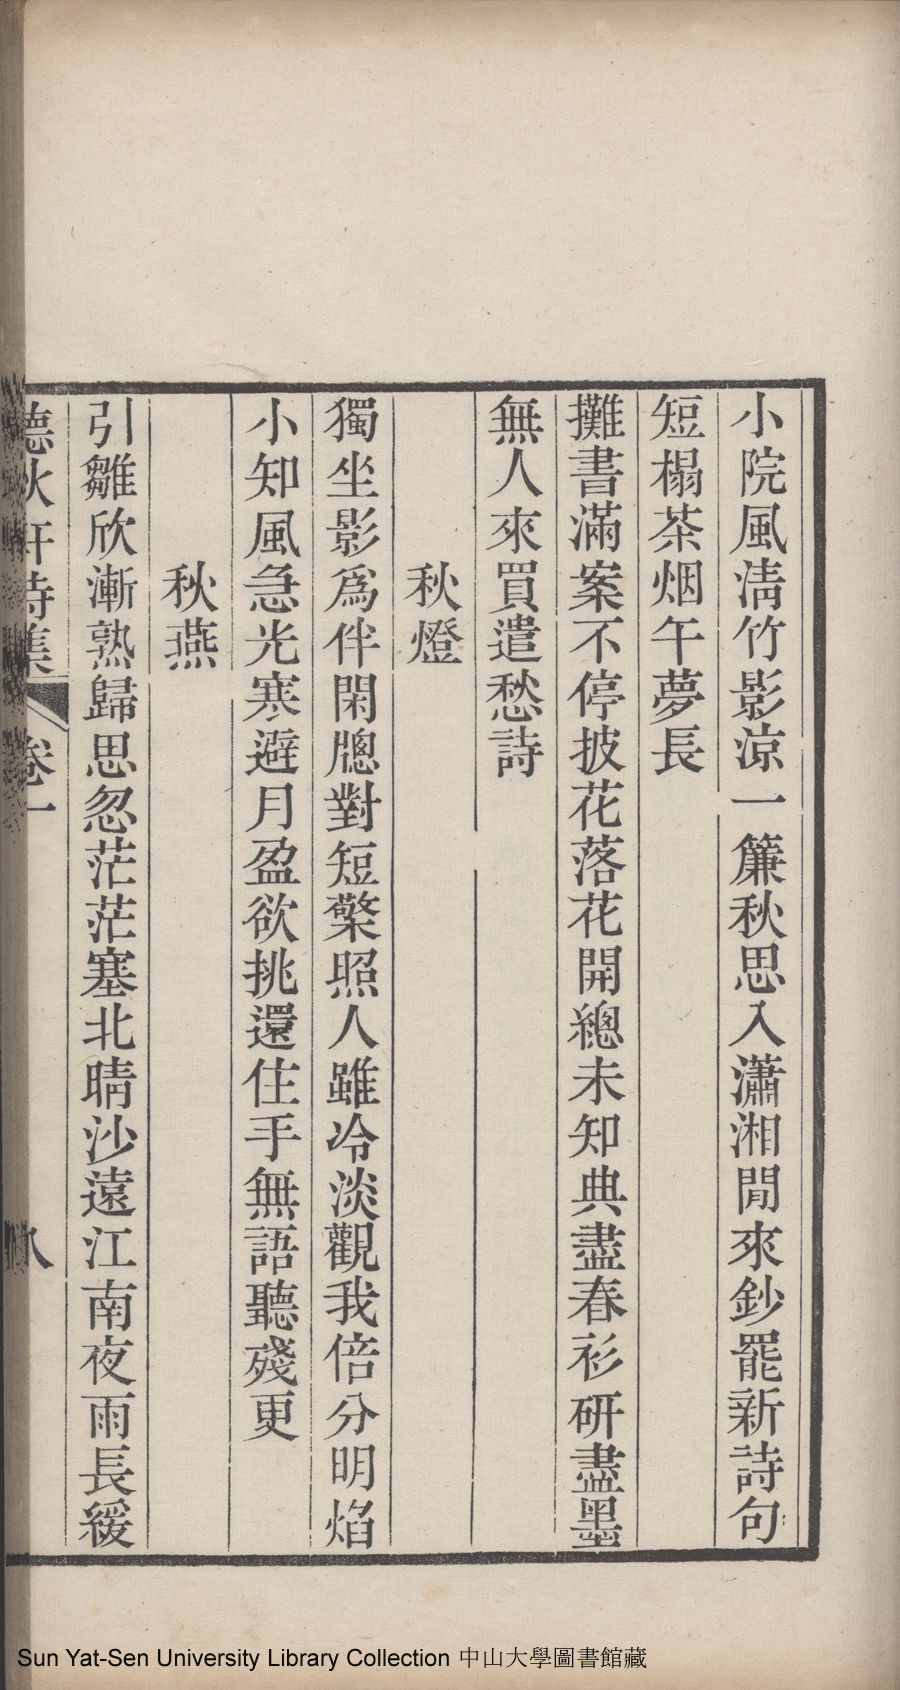 小院風淸竹影涼一簾秋思入瀟湘閒來鈔罷新詩句
短榻茶烟午夢長
攤書滿案不停披花落花開總未知典盡春衫研盡墨
無人來買遣愁詩
秋燈
獨坐影爲伴閑牕對短檠照人雖冷淡觀我倍分明焰
小知風急光寒避月盈欲挑還住手無語聽殘更
秋燕
引雛欣漸熟歸思忽茫茫塞北晴沙遠江南夜雨長緩
秋軒詩集 卷一 八
Sun Yat-Sen University Library Collection 中山大學圖書館藏